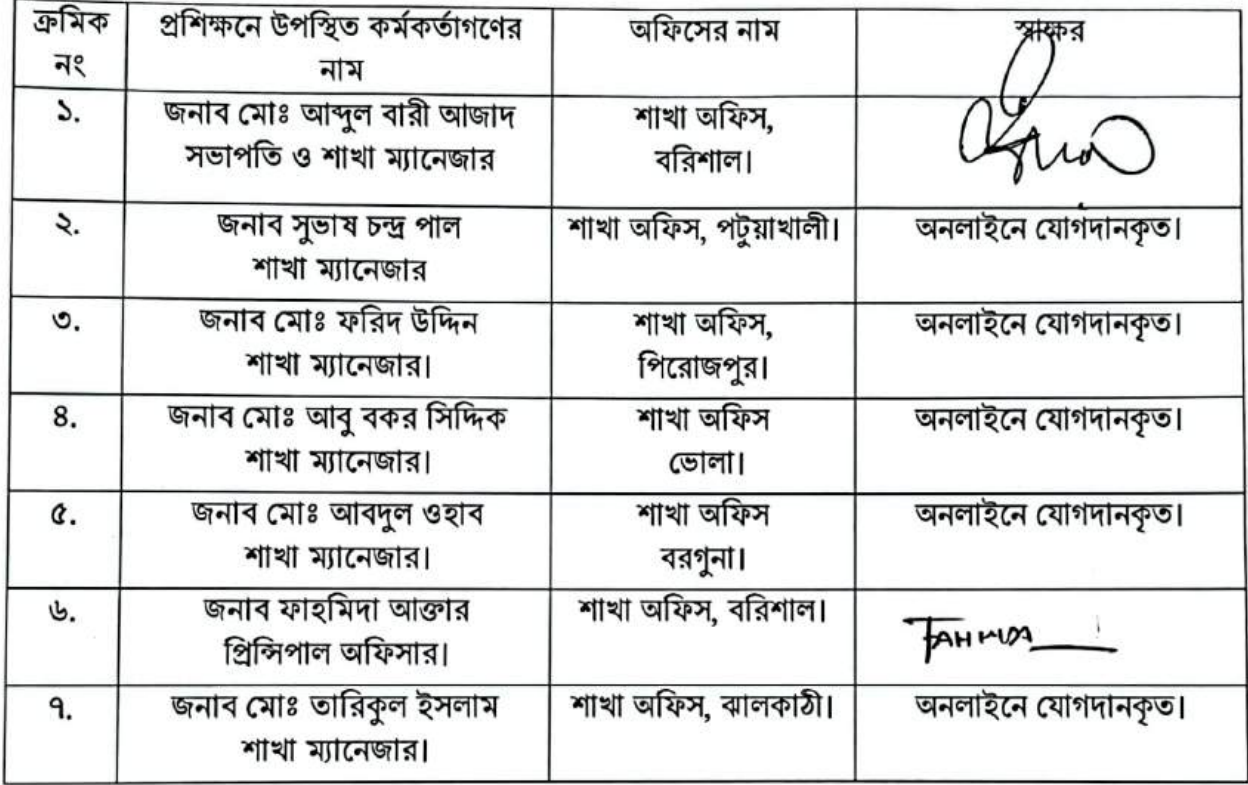 ক্রমিক নং | প্রশিক্ষনে উপস্থিত কর্মকর্তাগণের নাম | অফিসের নাম | স্বাক্ষর
১. | জনাব মোঃ আব্দুল বারী আজাদ সভাপতি ও শাখা ম্যানেজার | শাখা অফিস, বরিশাল। |
২. | জনাব সুভাষ চন্দ্র পাল শাখা ম্যানেজার | শাখা অফিস, পটুয়াখালী। | অনলাইনে যোগদানকৃত।
৩. | জনাব মোঃ ফরিদ উদ্দিন শাখা ম্যানেজার। | শাখা অফিস, পিরোজপুর। | অনলাইনে যোগদানকৃত।
৪. | জনাব মোঃ আবু বকর সিদ্দিক শাখা ম্যানেজার। | শাখা অফিস ভোলা। | অনলাইনে যোগদানকৃত।
৫. | জনাব মোঃ আবদুল ওহাব শাখা ম্যানেজার। | শাখা অফিস বরগুনা। | অনলাইনে যোগদানকৃত।
৬. | জনাব ফাহমিদা আক্তার প্রিন্সিপাল অফিসার। | শাখা অফিস, বরিশাল। |
৭. | জনাব মোঃ তারিকুল ইসলাম শাখা ম্যানেজার। | শাখা অফিস, ঝালকাঠী। | অনলাইনে যোগদানকৃত।